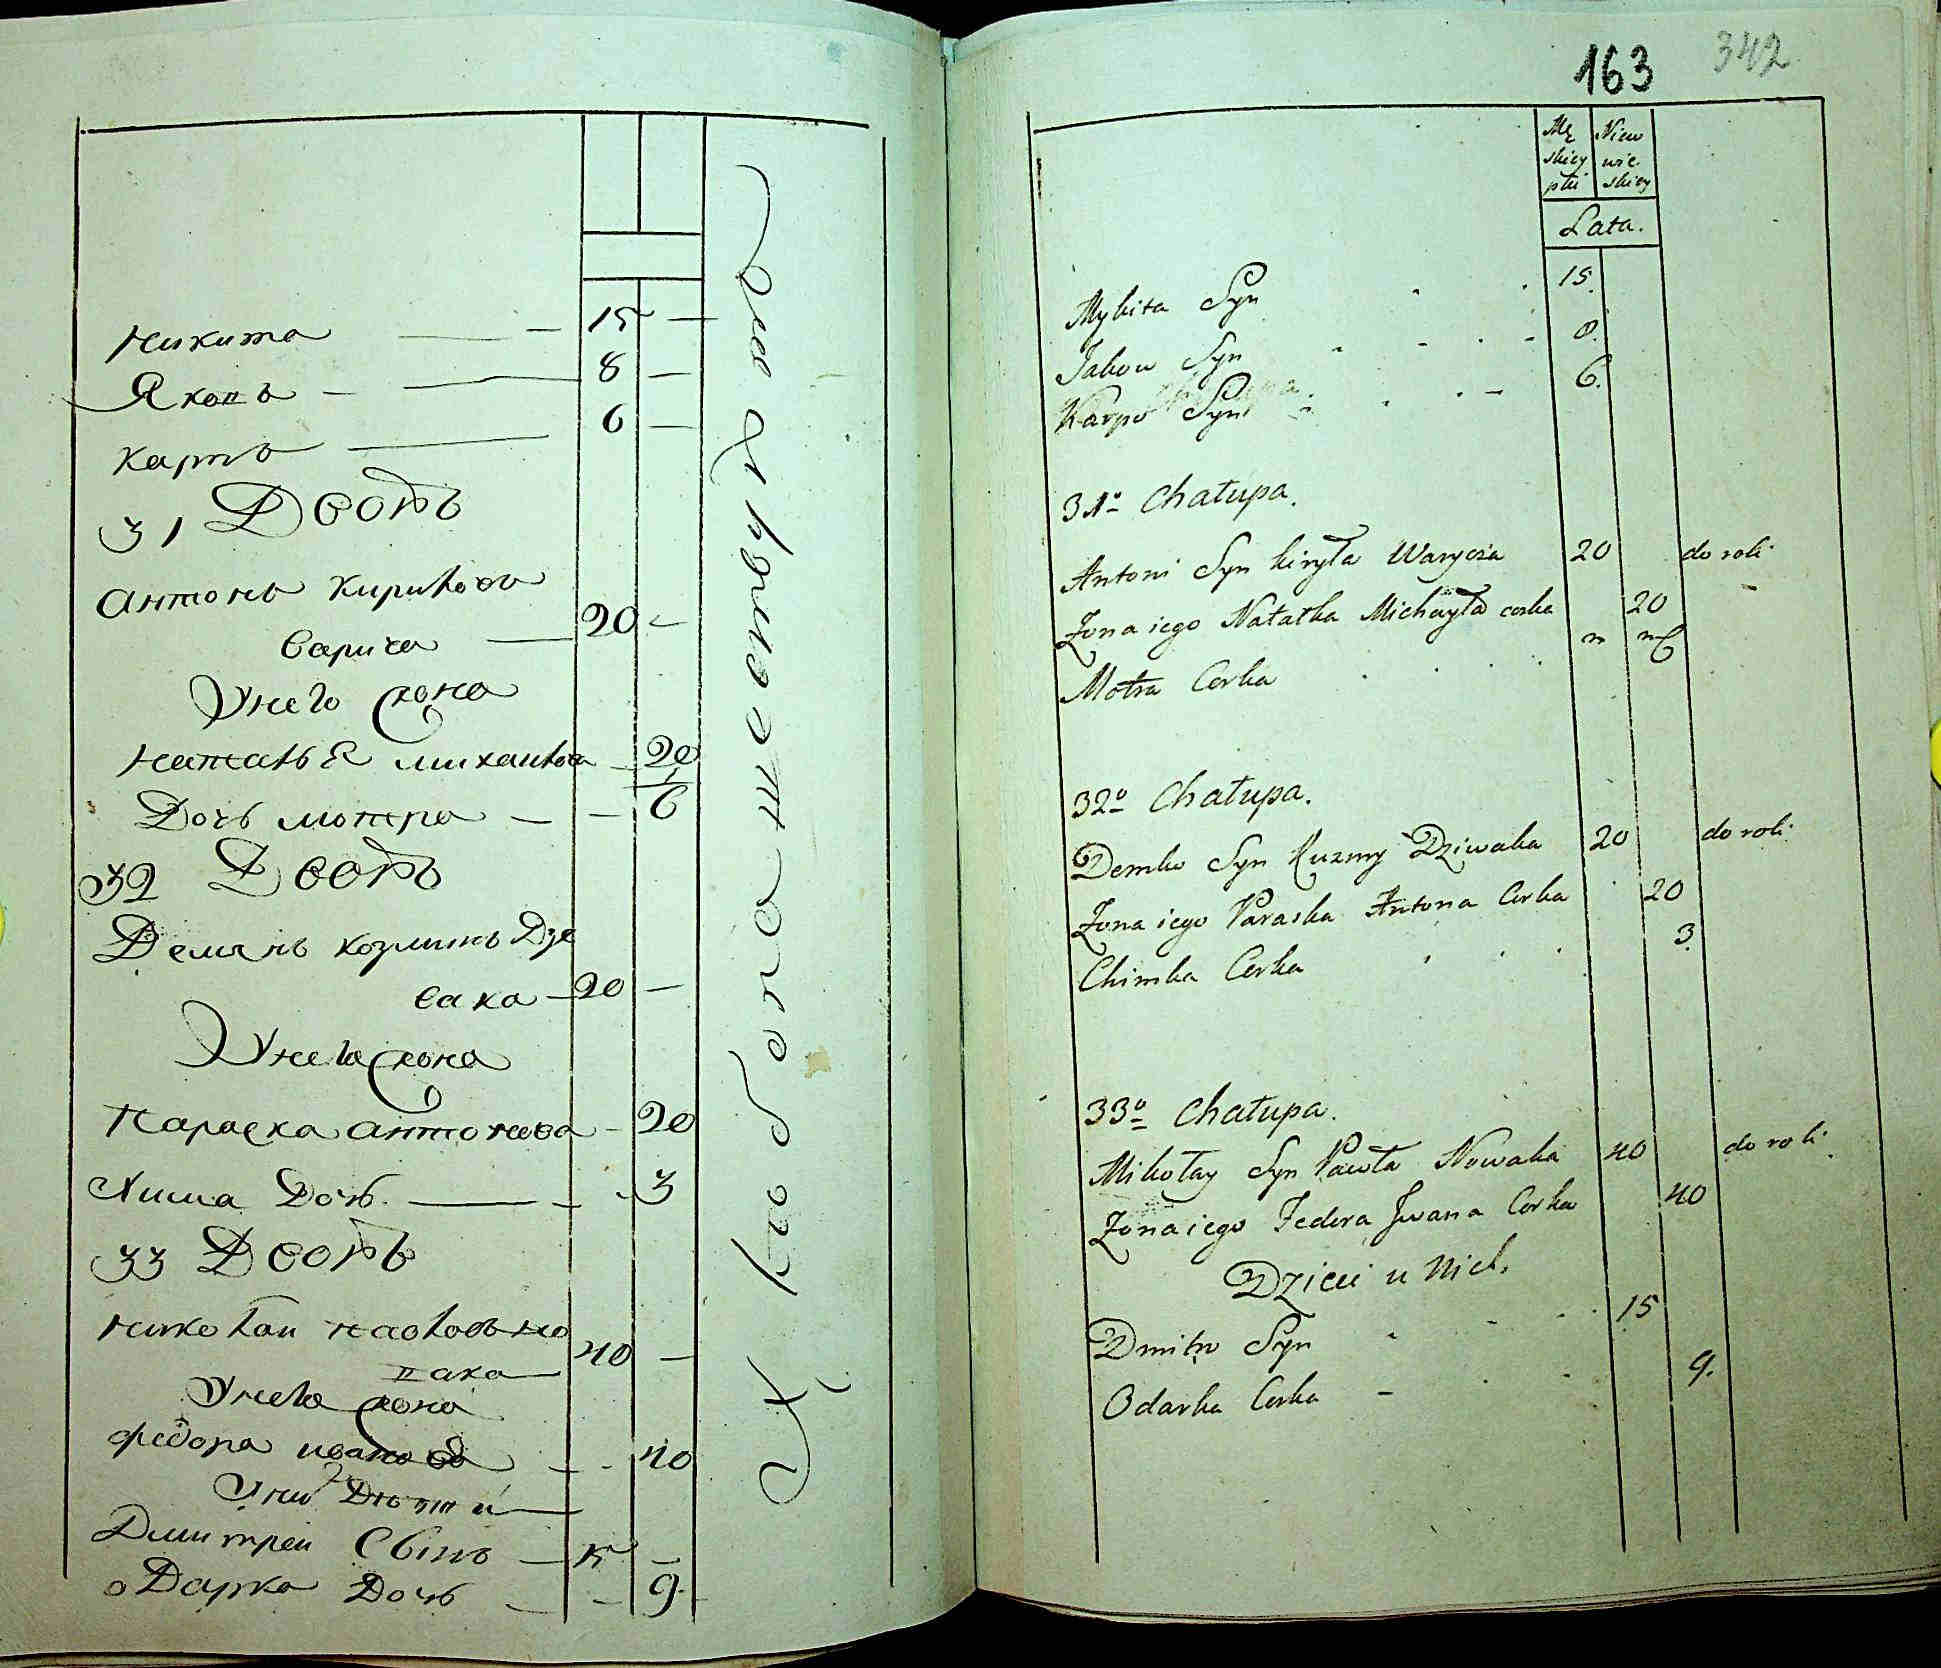 Никита — 15 —
Яковъ — 8 —
Карпъ — 6 —
31 Дворъ
Антонъ Кирилова
Варича — 20 —
У него жона
Наталья Михаилова — 20
Дочь Мотра — — 6
32 Дворъ
Демянъ Козминъ Дзе
вака — 20 —
У него жона
Параска Антонова — 20
Хима Дочь — — 3
33 Дворъ
Николай Павловъ но
вака 40 —
У него жона
Федора Иванова — 40
У них Дѣти
Дмитрей Сынъ — 15 —
Одарка Дочь — — 9.
163 342
Mę
skiey
płci
Niew
wie
skiey
Lata.
Mykita Syn 15.
Jakow Syn 8.
Karpo Syn 6.
31º Chałupa.
Antoni Syn kiryła Warycza 20 do roli
Zona iego Natałka Michayła corka 20
Motra Corka 6
32º Chałupa.
Demko Syn Kuzmy Dziwaka 20 do roli
Zona iego Paraska Antona Corka 20
Chimka Corka 3.
33º Chałupa.
Mikołay Syn Pawła Nowaka 40 do roli
Zona iego Fedora Jwana Corka 40
Dzieci u nich
Dmitro Syn 15
Odarka Corka 9.